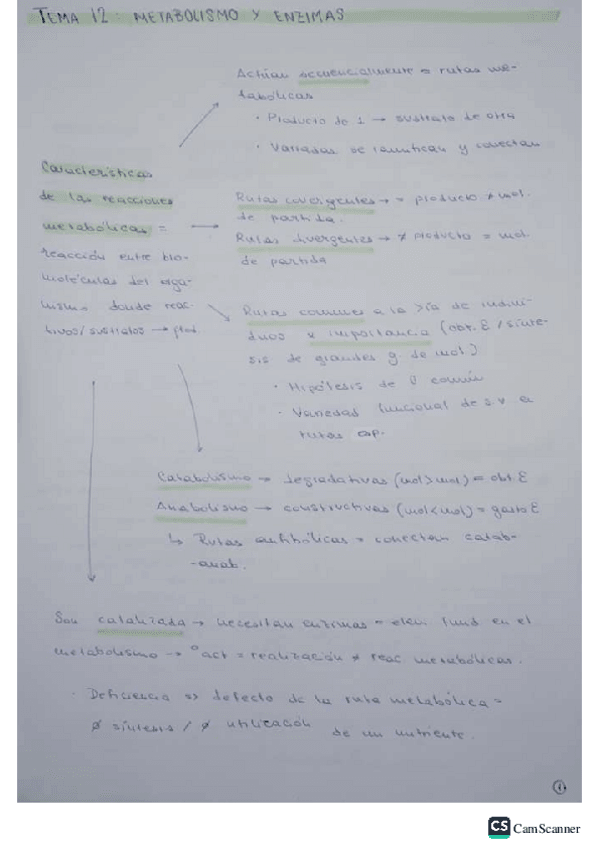 TEMA 12: METABOLISMO Y ENZIMAS
Actúan secuencialmente = rutas me-
tabólicas
· Producto de 1 → sustrato de otra
· Variadas se ramifican y conectan
Características
de las reacciones
metabólicas =
reacción entre bio-
moléculas del orga-
nismo donde reac-
tivos/sustratos → prod.
Rutas covergentes → = producto ≠ mol.
de partida.
Rutas divergentes → ≠ producto = mol.
de partida
Rutas comunes a la >ía de indivi-
duos x importancia (obt. E / sínte-
sis de grandes g. de mol)
· Hipótesis de O común
· Variedad funcional de s.v a
rutas esp.
Catabolismo → degradativas (mol>mol) = obt. E
Anabolismo → constructivas (mol<mol) = gasto E
↳ Rutas anfibólicas = conectan catab-
-anab.
Son catalizada → necesitan enzimas = elem fund en el
metabolismo → act = realización reac metabólicas.
· Deficiencia => defecto de la ruta metabólica =
Ø síntesis / Ø utilización de un nutriente.
1
CS CamScanner